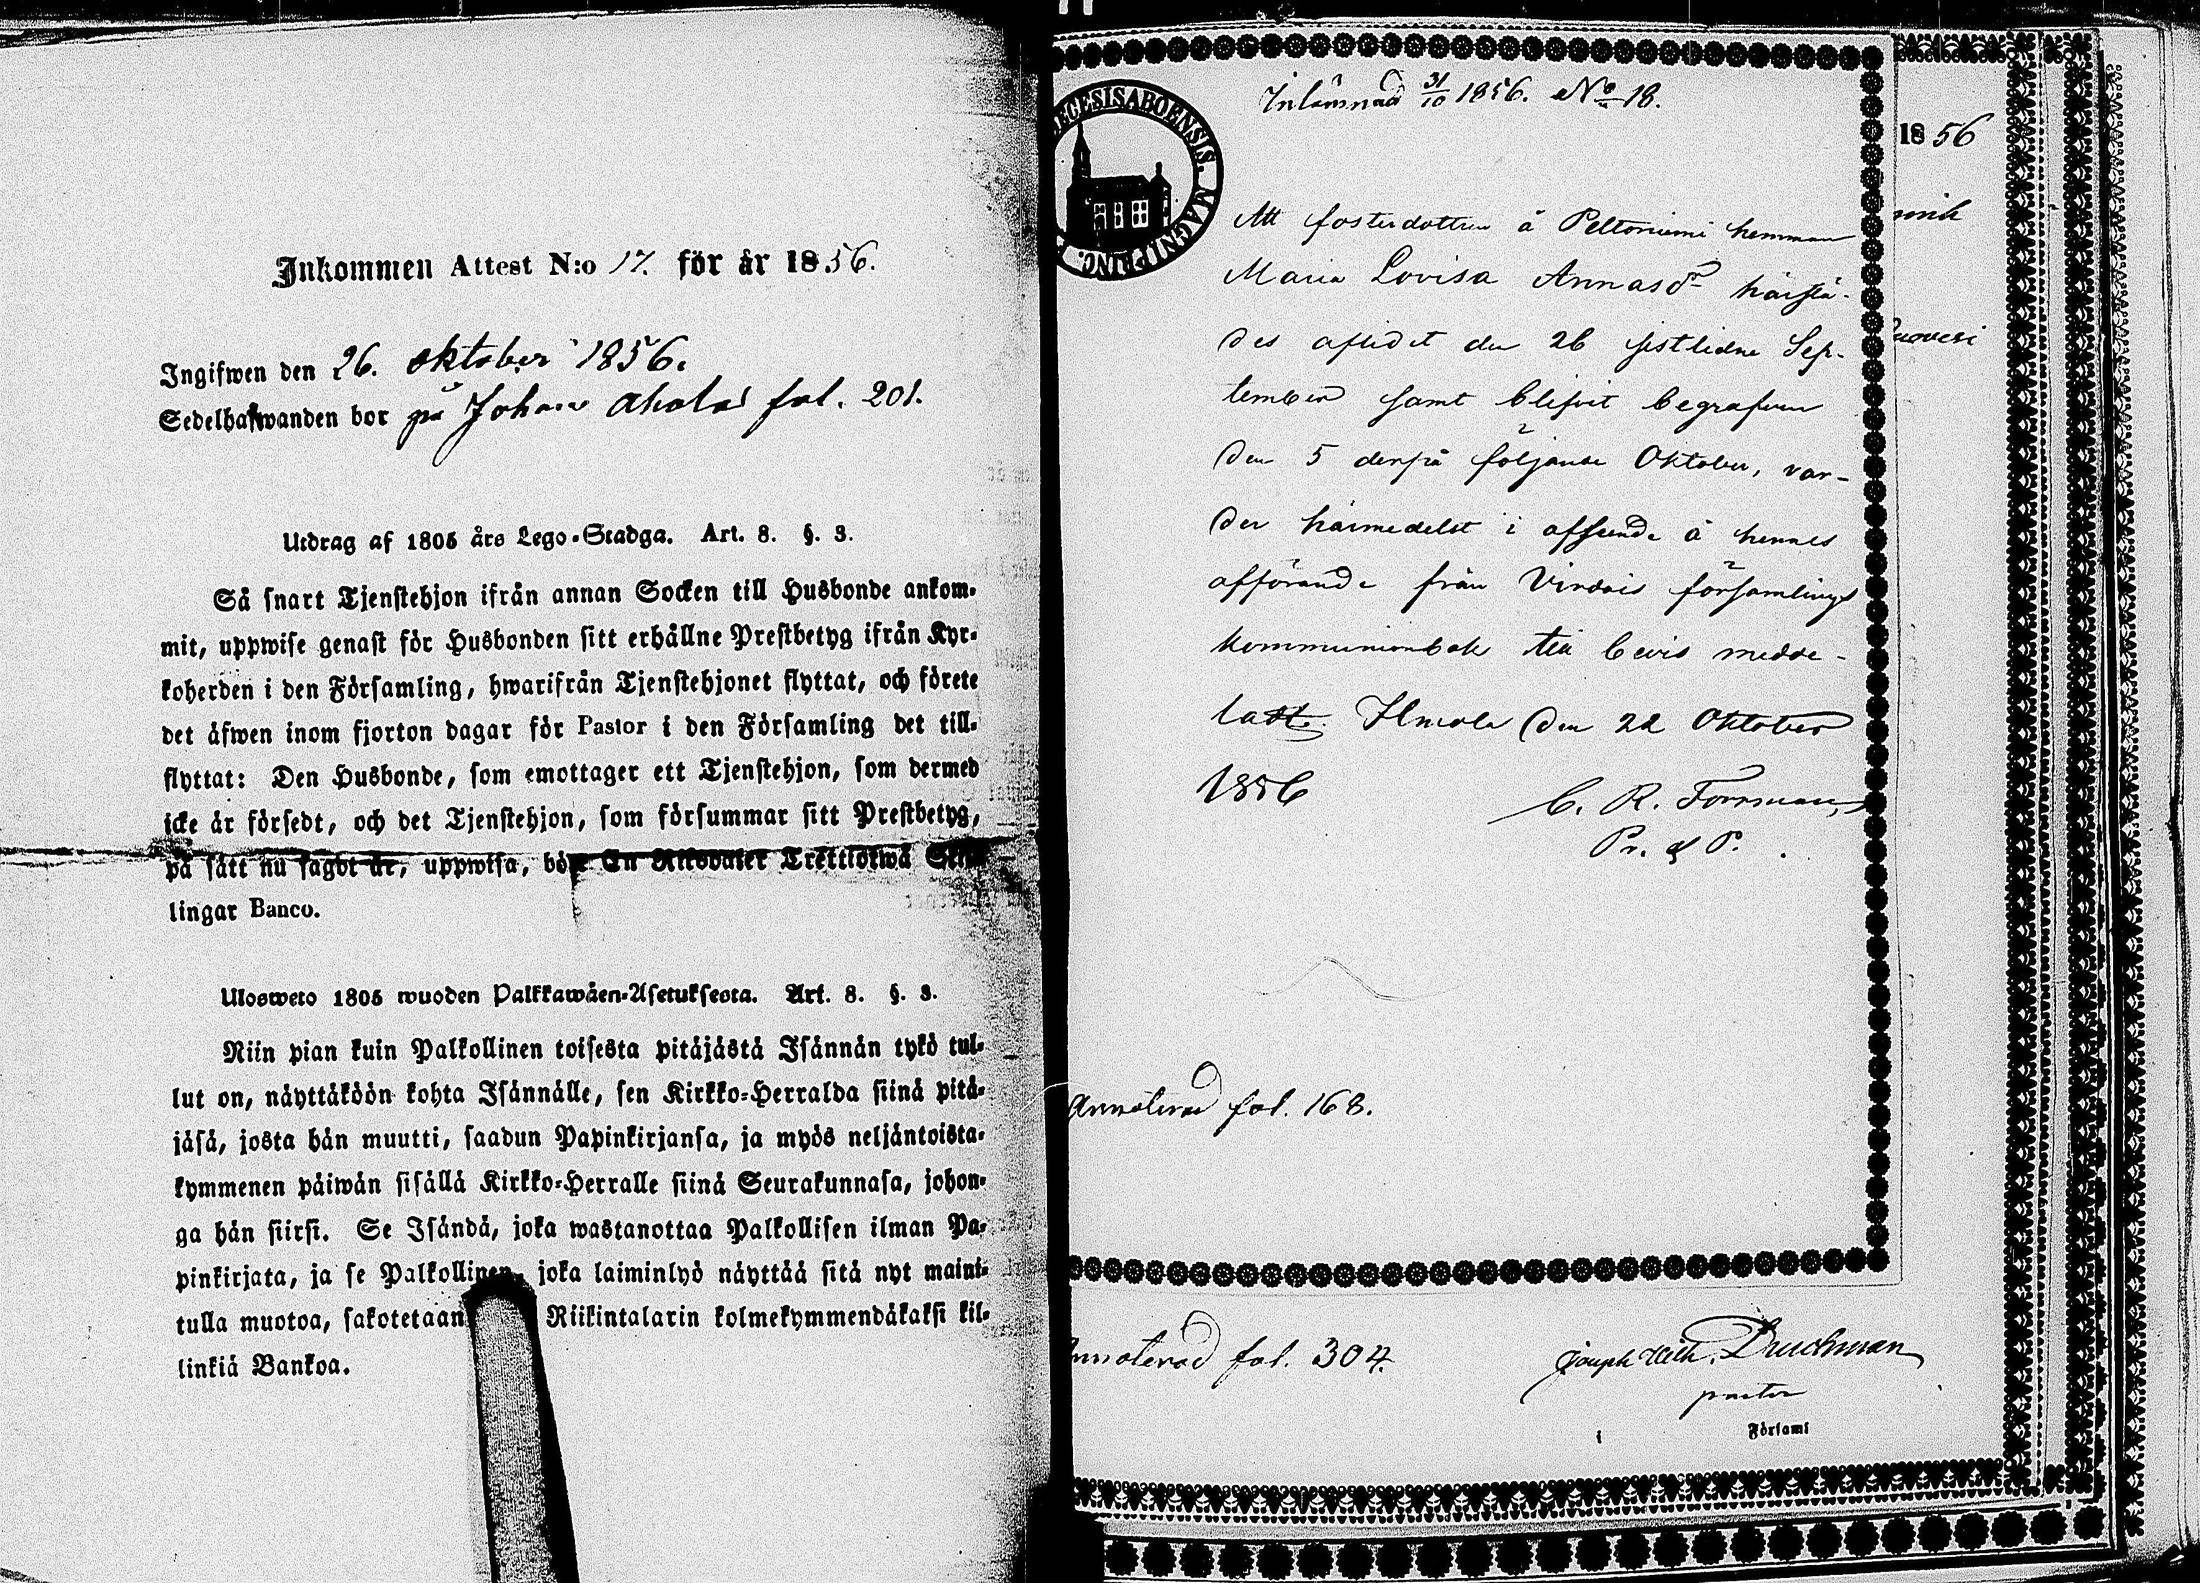 Inkommen Attest N:o 17. för år 1856.
Ingifwen den 26. oktober 1856.
Sedelhafwanden bor på Johan Ahola fol. 201.
Utdrag af 1805 års Lego-Stadga. Art. 8. §. 3.
Så snart Tjenstehjon ifrån annan Socken till Husbonde ankom-
mit, uppwise genast för Husbonden sitt erhållne Prestbetyg ifrån Kyr-
koherden i den Församling, hwarifrån Tjenstehjonet flyttat, och förete
det äfwen inom fjorton dagar för Pastor i den Församling det till-
flyttat: Den Husbonde, som emottager ett Tjenstehjon, som dermed
icke är försedt, och det Tjenstehjon, som försummar sitt Prestbetyg,
på sätt nu sagdt är, uppwisa, böte En Riksdaler Trettiotwå Skil-
lingar Banco.
Ulosweto 1805 wuoden Palkkawäen-Asetuksesta. Art. 8. §. 3.
Niin pian kuin Palkollinen toisesta pitäjästä Isännän tykö tul-
lut on, näyttäköön kohta Isännälle, sen Kirkko-Herralda siinä pitä-
jäsä, josta hän muutti, saadun Papinkirjansa, ja myös neljäntoista-
kymmenen päiwän sisällä Kirkko-Herralle siinä Seurakunnasa, johon-
ga hän siirsi. Se Isändä, joka wastanottaa Palkollisen ilman Pa-
pinkirjata, ja se Palkollinen, joka laiminlyö näyttää sitä nyt maini-
tulla muotoa, sakotetaan Riikintalarin kolmekymmendäkaksi kil-
linkiä Bankoa.
DIOECESIS ABOENSIS. MAGNI PRINC.
Inlämnad 31/10 1856. No 18.
Att fosterdottren å Peltoniemi hemman
Maria Lovisa Annasdr härstä-
des aflidit den 26 sistlidne Sep-
tember samt blifvit begrafven
den 5 derpå följande Oktober, var-
der härmedelst i afseende å hennes
afförande från Virdois församlings
kommunionbok till bevis medde-
ladt. Ilmola den 22 Oktober
1856
C. R. Forsman,
Pr. & P.
Annoterad fol. 168.
Annoterad fol. 304.
Joseph Wilh. Druckman
pastor
i Församl
1856
uovesi